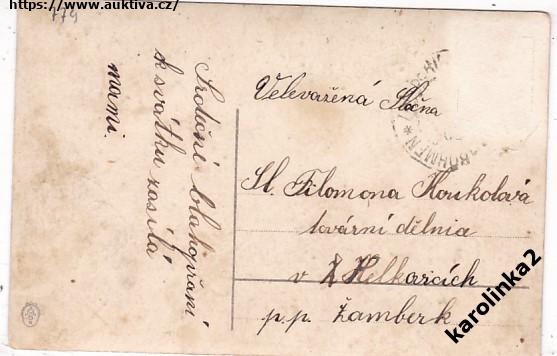 https://www.auktiva.cz/
779
Srdečné blahopřání
k svátku zasílá
mami.
Velevážená Slečna
BÖHMEN
Sl. Filomena Koukolová
tovární dělnia
v Helkovicích
p.p. Žamberk
karolinka2